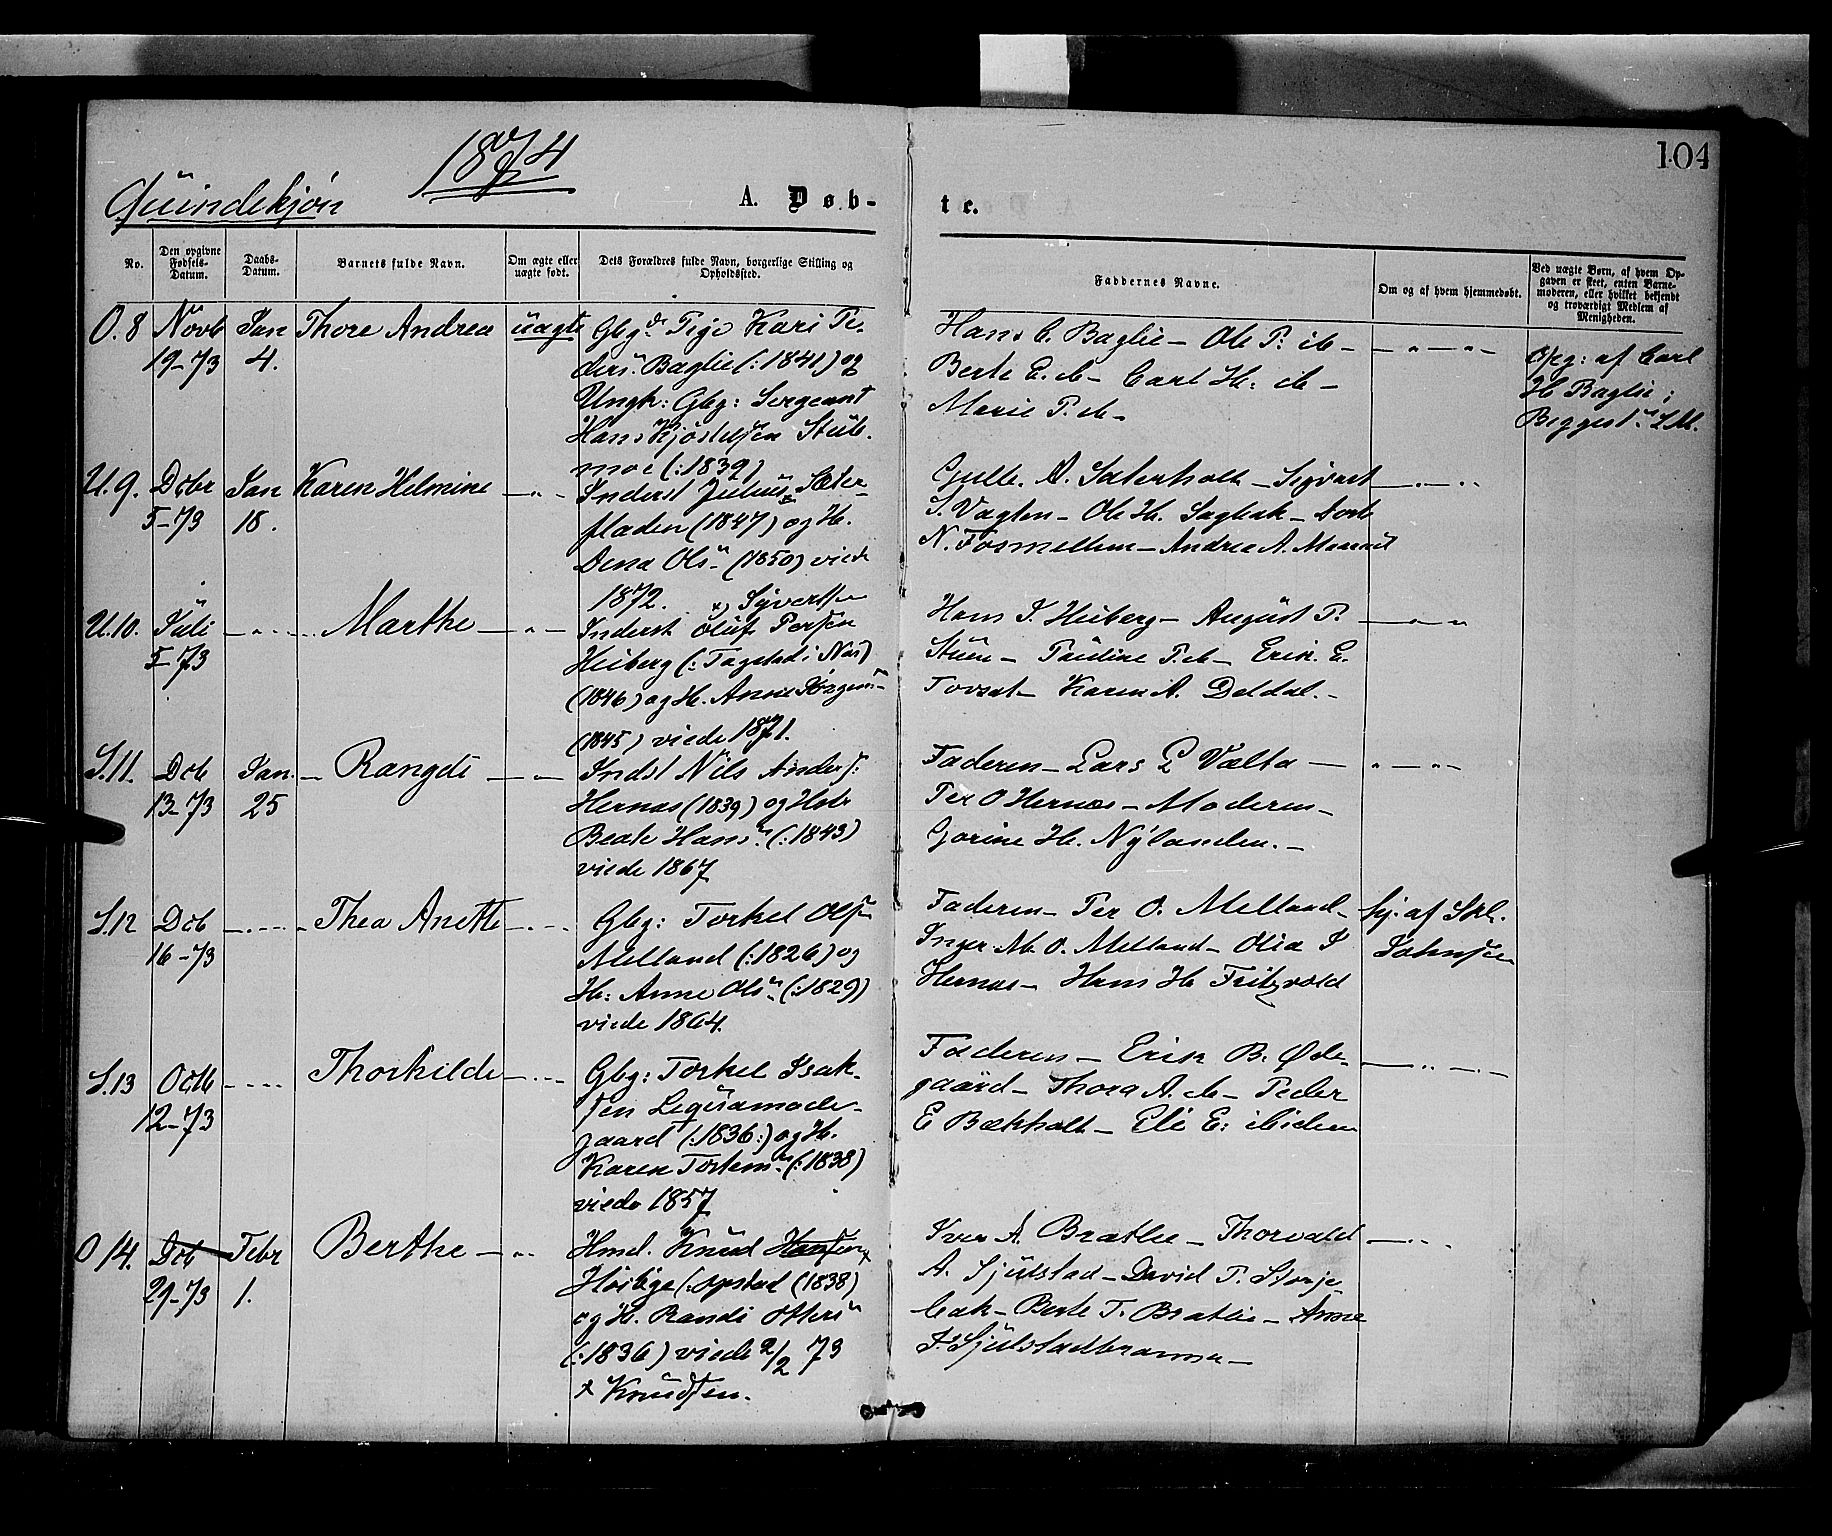 104
1874
Qvindekjøn
A. Døb-
te.
No.
Den opgivne Fødsels-Datum.
Daabs-Datum.
Barnets fulde Navn.
Om ægte eller uægte født.
Dets Forældres fulde Navn, borgerlige Stilling og Opholdssted.
Faddernes Navne.
Om og af hvem hjemmedøbt.
Ved uægte Børn, af hvem Opgaven er skeet, enten Barnemoderen, eller hvilket bekjendt og troværdigt Medlem af Menigheden.
O. 8 Novb 19-73 Jan 4. Thore Andrea uægte
Gbgdr Pige Kari Pe-
ders. Baglie (:1841) og
Ungk: Gbg: Sergeant
Hans Kjøstelsen Stub-
moe (:1839)
Hans C. Baglie - Ole P. ib -
Berte E. ib - Carl H. ib -
Marie P. ib -
Opg: af Carl
H Baglie;
U. 9. Dcbr 5-73 Jan 18. Karen Helmine
Inderst Julius x Sæter-
fladen (1847) og H.
Dena Ols n (1850) viede
1872. x) Syvertsen
Gulle. A. Saterholt - Sigvart
S. Vagten - Ole H. Sagbak - Dorte
N. Fosmellem - Andrea A.
U. 10. Juli 5-73 Marthe
Inderst Oluf Persen
Heiberg (: Fagstad i Nas)
(1846) og H. Anne Jørgens
(1845) viede 1871.
Hans J. Heiberg - August P.
Stuen - Pauline P. ib - Erik E.
Karen A. Deldal. -
S. 11. Dcb 13-73 Jan. 25 Rangdi
Indst Nils Anders:
Hernæs (1839) og Hstr
Beate Hans n. (:1843)
viede 1867
Faderen - Lars L Vælta -
Per O Hernæs - Moderen -
Gorine H. Nylanden. -
S. 12 Dcb 16-73 Thea Anette
Gbg: Torkel Olsen
Melland (:1826) og
H: Anne Ols n. (:1829)
viede 1864.
Faderen - Per O. Melland -
Inger M. O. Melland - Olia S
Hernæs - Hans H Fritzvold
hj. af Skl.
Johnsen
S. 13 Octb 12-73 Thorhilde
Gbg: Torkel Isak-
sen
gaard (:1836:) og H.
Karen Torstens n. (:1838)
viede 1857
Faderen - Erik B. Øde-
gaard - Thora A. ib - Peder
E Bækholt - Eli E: ibidem
O 14. Dcb 29-73 Febr 1. Berthe
Hmd. Knud Hansen x
Høibye (:opstad (1838)
og H. Randi Otters n
(:1836) viede 2/2 73
x Knudsen.
Iver A. Bratlie - Thorvald
A. Sjulstad - David P. Storje-
bak - Berte T. Bratlie - Anne
Sjulstadbramma -